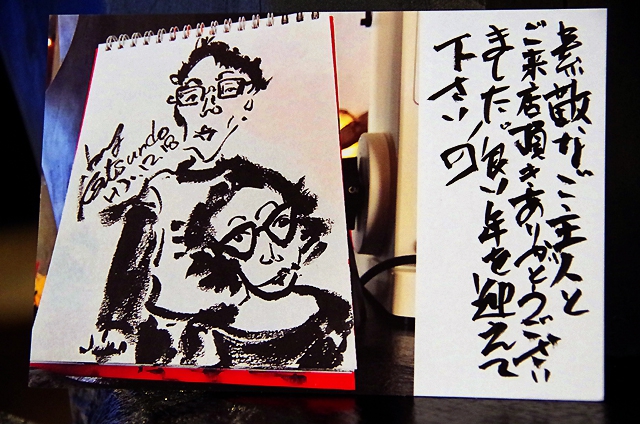 素敵なご主人と
ご来店頂きありがとうござい
ました！良い年を迎えて
下さい
by
Katsundo
17.12.18